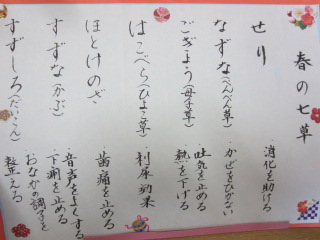 春の七草
せり
・消化を助ける
なずな(ぺんぺん草)
・かぜをひかない
ごぎょう(母子草)
・吐気を止める
熱を下げる
はこべら(ひよこ草)
・利尿効果
ほとけのざ
・歯痛を止める
すずな(かぶ)
・音声をよくする
・下痢を止める
すずしろ(だいこん)
・おなかの調子を
整える